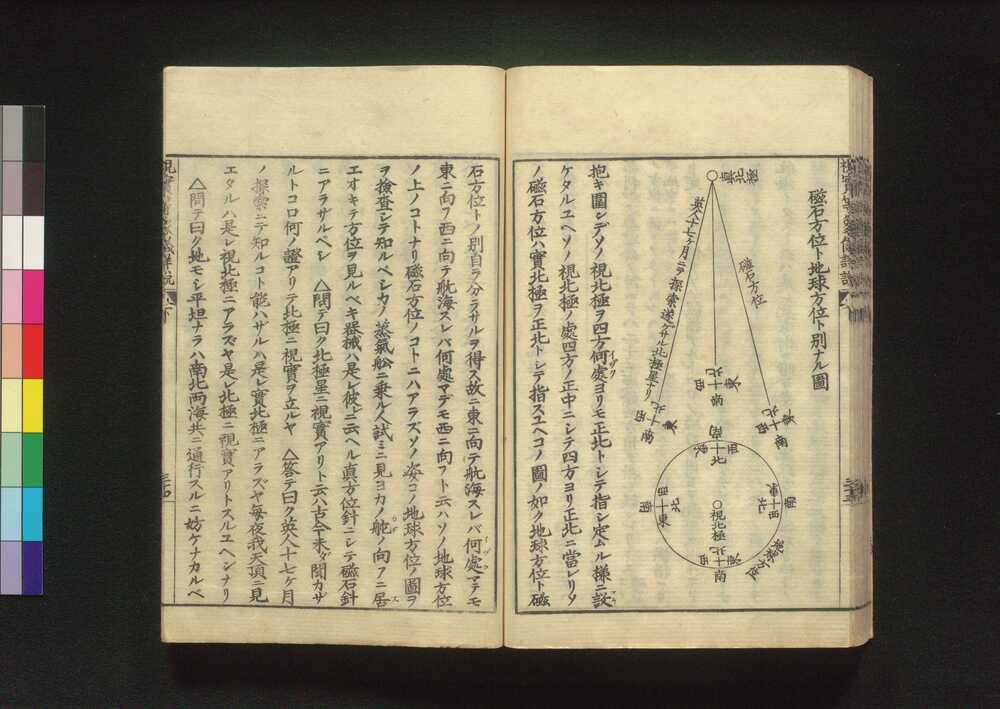 磁石方位ト地球方位ト別ナル圖
實北極
英人十七ヶ月ニテ探索遂ケサル北極星ナリ
磁石方位
東
西
北
南
視北極
地球方位
抱キ圖シデソノ視北極ヲ四方何處ヨリモ正北トシテ指シ定ムル様ニ設
ケタルユヘソノ視北極ノ處四方ノ正中ニシテ四方ヨリ正北ニ當レリソ
ノ磁石方位ハ實北極ヲ正北トシテ指スユヘコノ圖ノ如ク地球方位ト磁
石方位トノ別自ラ分ラサルヲ得ス故ニ東ニ向テ航海スレバ何處マテモ
東ニ向フ西ニ向テ航海スレバ何處マデモ西ニ向フト云ハソノ地球方位
ノ上ノコトナリ磁石方位ノコトニハアラズソノ姿コノ地球方位ノ圖ヲ
ヲ撿查シテ知ルベシカノ蒸氣舩ニ乗ル人試ミニ見ヨカノ舵ノ向フニ居
エオキテ方位ヲ見ルベキ器械ハ是レ彼レニ云ヘル真方位針ニシテ磁石針
ニアラサルベシ △問テ曰ク北極星ニ視實アリト云ハ古今未タ聞カザ
ルトコロ何ノ證アリテ北極ニ視實ヲ立ルヤ △答テ曰ク英人十七ヶ月
ノ探索ニテ知ルコト能ハザルハ是レ實北極ニアラズヤ每夜我天頂ニ見
エタルハ是レ視北極ニアラズヤ是レ北極ニ視實アリトスルユヘンナリ
△問テ曰ク地モシ平坦ナラハ南北兩海共ニ通行スルニ妨ケナカルベ